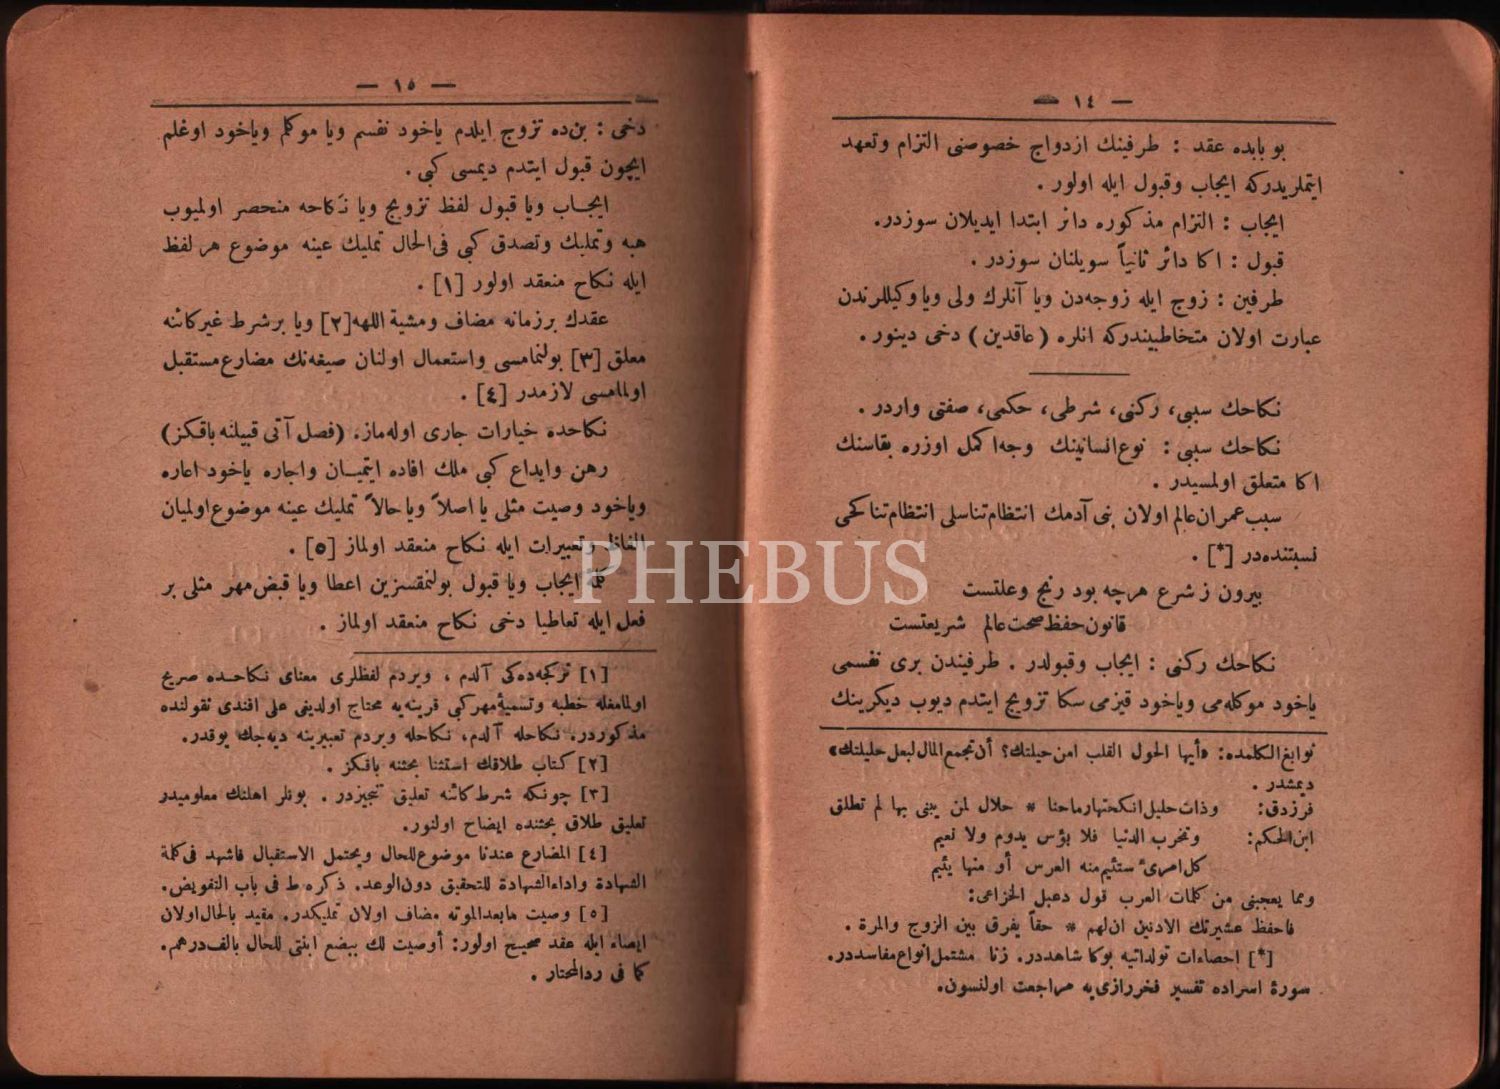 — ١٤ —
بو بابده عقد : طرفينك ازدواج خصوصنى التزام وتعهد
ايتملريدركه ايجاب وقبول ايله اولور .
ايجاب : التزام مذكوره دائر ابتدا ايديلان سوزدر.
قبول : اكا دائر ثانياً سويلنان سوزدر .
طرفين : زوج ايله زوجه‌دن ويا آنلرك ولى ويا وكيللرندن
عبارت اولان متخاطبيندركه انلره (عاقدين) دخى دينور .
نكاحك سببى، ركنى، شرطى، حكمى، صفتى واردر .
نكاحك سببى : نوع‌انسانينك وجه‌اكمل اوزره بقاسنك
اكا متعلق اولمسيدر .
سبب‌عمران‌عالم اولان بنى آدمك انتظام‌تناسلى انتظام‌تناكحى
نسبتنده‌در [*] .
بيرون ز شرع هرچه بود رنج وعلتست
قانون‌حفظ‌صحت‌عالم شريعتست
نكاحك ركنى : ايجاب وقبولدر . طرفيندن برى نفسمى
ياخود موكله‌مى وياخود قيزمى سكا تزويج ايتدم ديوب ديكرينك
نوابغ‌الكلمده: «أيها الحول القلب امن حيلتك؟ أن تجمع المال لبعل حليلتك»
ديمشدر .
فرزدق: وذات حليل انكحتها رماحنا * حلال لمن يبنى بها لم تطلق
ابن‌الحكم: وتخرب الدنيا فلا بؤس يدوم ولا نعيم
كل امرىء ستئيم منه العرس أو منها يئيم
ومما يعجبنى من كلمات العرب قول دعبل الخزاعى:
فاحفظ عشيرتك الادنين ان لهم * حقاً يفرق بين الزوج والمرة .
[*] احصاءات تولداتيه بوكا شاهددر. زنا مشتمل انواع مفاسددر.
سورۀ اسراده تفسير فخررازى‌يه مراجعت اولنسون.
— ١٥ —
دخى : بن‌ده تزوج ايلدم ياخود نفسم ويا موكلم وياخود اوغلم
ايچون قبول ايتدم ديمسى كبى .
ايجاب ويا قبول لفظ تزويج ويا نكاحه منحصر اولميوب
هبه وتمليك وتصدق كبى فى‌الحال تمليك عينه موضوع هر لفظ
ايله نكاح منعقد اولور [١] .
عقدك برزمانه مضاف ومشية اللهه [٢] ويا برشرط غيركائنه
معلق [٣] بولنمامسى واستعمال اولنان صيغه‌نك مضارع مستقبل
اولمامسى لازمدر [٤] .
نكاحده خيارات جارى اوله‌ماز. (فصل آتى قبيلنه باقكز)
رهن وايداع كبى ملك افاده ايتميان واجاره ياخود اعاره
وياخود وصيت مثلى يا اصلاً ويا حالاً تمليك عينه موضوع اولميان
الفاظ وتعبيرات ايله نكاح منعقد اولماز [٥] .
كلمۀ ايجاب ويا قبول بولنمقسزين اعطا ويا قبض مهر مثلى بر
فعل ايله تعاطيا دخى نكاح منعقد اولماز .
[١] تركجه‌ده‌كى آلدم ، ويردم لفظلرى معناى نكاحده صريح
اولمامغله خطبه وتسميۀ مهركبى قرينه‌يه محتاج اولديغى على افندى نقولنده
مذكوردر. نكاحله آلدم، نكاحله ويردم تعبيرينه ديه‌جك يوقدر.
[٢] كتاب طلاقك استثنا بحثنه باقكز .
[٣] چونكه شرط كائنه تعليق تنجيزدر . بونلر اهلنك معلوميدر
تعليق طلاق بحثنده ايضاح اولنور.
[٤] المضارع عندنا موضوع للحال ويحتمل الاستقبال فاشهد فى كلمة
الشهادة واداء الشهادة للتحقيق دون الوعد. ذكره ط فى باب التفويض.
[٥] وصيت مابعدالموته مضاف اولان تمليكدر. مقيد بالحال اولان
ايصاء ايله عقد صحيح اولور: أوصيت لك ببضع ابنتى للحال بالف درهم.
كما فى ردالمحتار .
PHEBUS